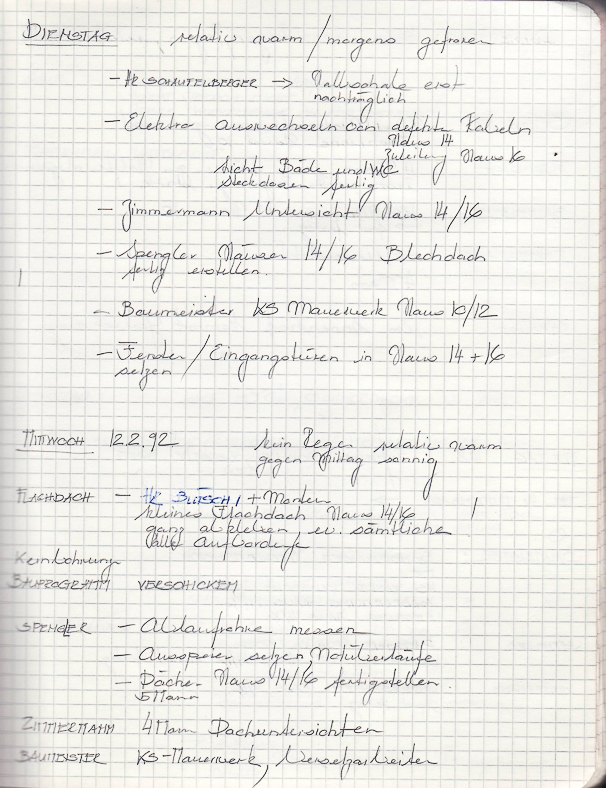 DIENSTAG relativ warm / morgens gefroren
- Hr SCHAUFELBERGER → erst
nachträglich
- Elektro auswechseln von defekte Kabeln
Haus 14
Zuleitung Haus 16
Licht Bäder und WC
Steckdosen fertig
- Zimmermann Untersicht Haus 14/16
- Spengler Häuser 14/16 Blechdach
fertig erstellen.
- Baumeister KS Mauerwerk Haus 10/12
- Fenster / Eingangstüren in Haus 14 + 16
setzen
MITTWOCH 12.2.92 kein Regen relativ warm
gegen Mittag sonnig
FLACHDACH - Hr + Monteur
kleines Flachdach Haus 14/16
ganz abkleben, ev. sämtliche
Kernbohrung
BAUPROGRAMM VERSCHICKEN
SPENGLER - Ablaufrohre messen
- Ausspeier setzen, Notüberläufe
- Dächer Haus 14/16 fertigstellen.
5 Mann
ZIMMERMANN 4 Mann Dachuntersichten
BAUMEISTER KS-Mauerwerk,